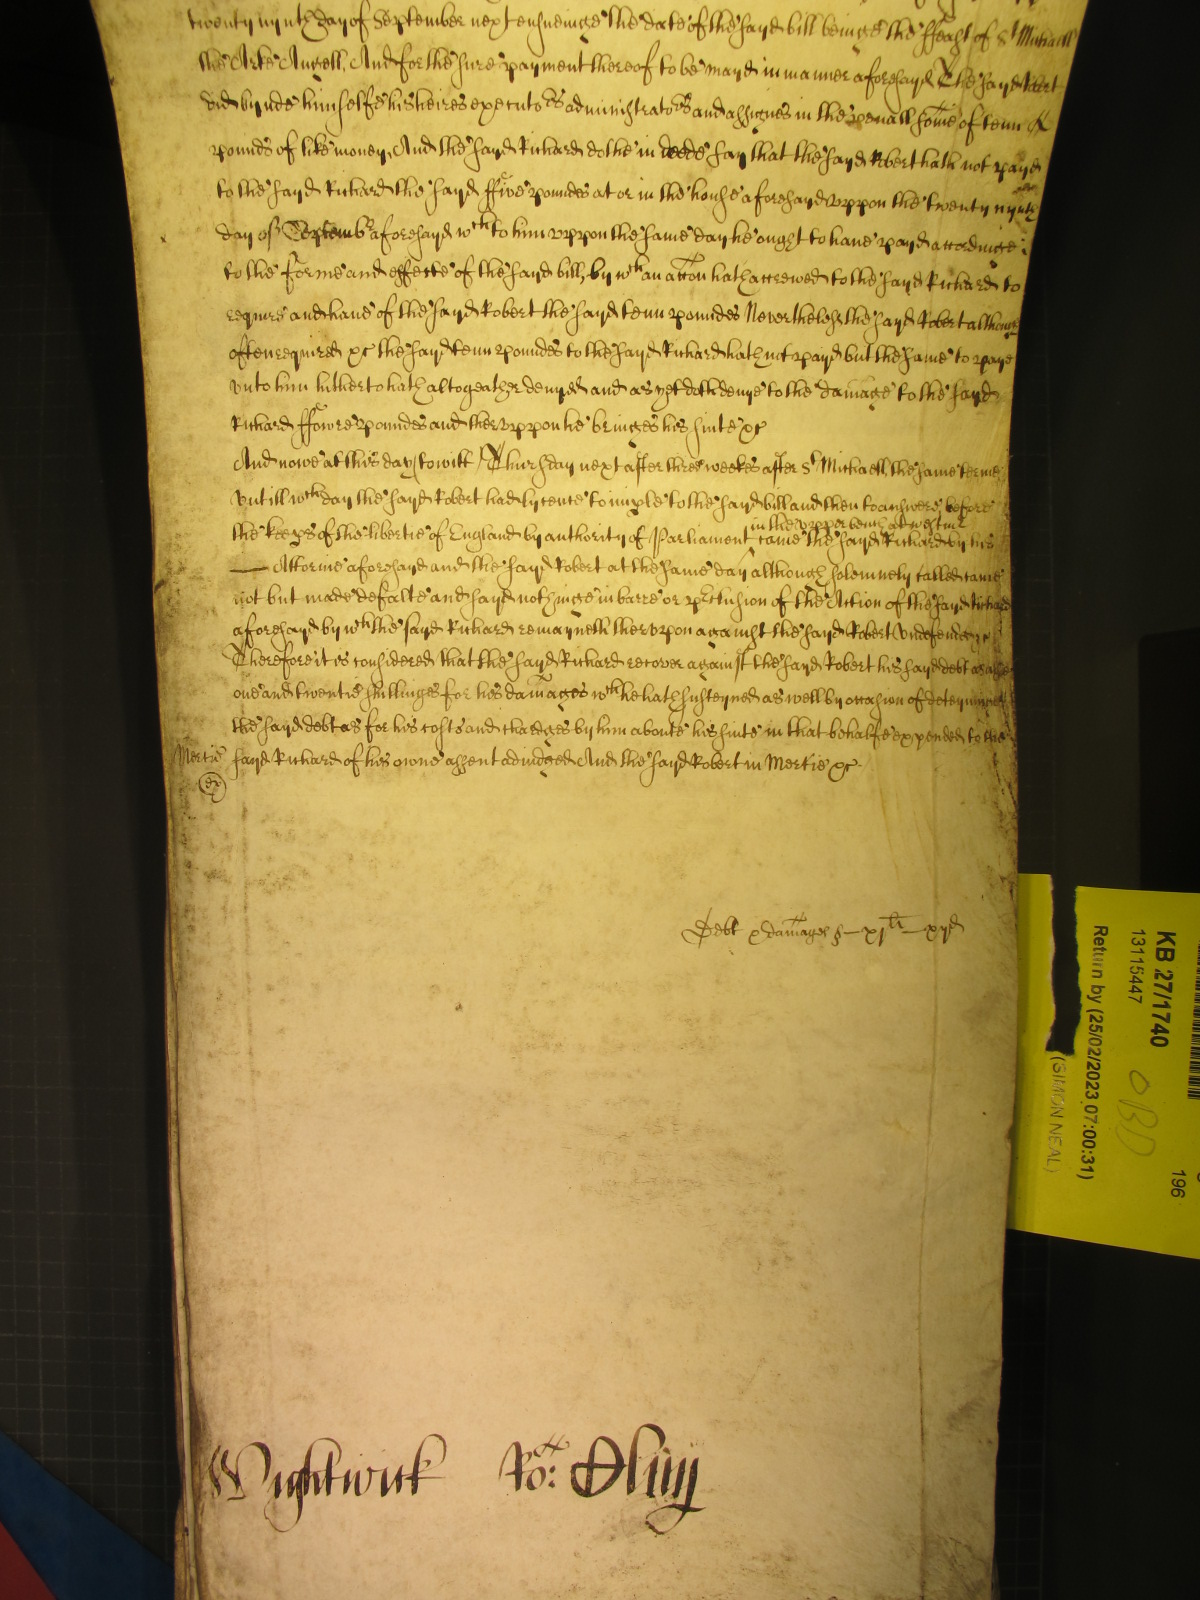 twenty nynth day of September next ensueinge the date of the sayd bill beinge the ffeast of St Michaell
the Arke Angell, And for the sure payment thereof to be mayd in manner aforesayd The sayd Robert
did bynde himselfe his heires executors administrators and assignes in the penall some of tenn
pounds of like money, And the sayd Richard dothe in deede say that the sayd Robert hath not payd
to the sayd Richard the sayd ffive poundes at or in the house aforesayd uppon the twenty nynth
day of Septemb aforesayd wch to him uppon the same day he ought to have payd accordinge
to the forme and effecte of the sayd bill, by wch an accon hath accrewed to the sayd Richard to
require and have of the sayd Robert the sayd tenn poundes Neverthelesse the sayd Robert althoug
often required &c the sayd tenn poundes to the sayd Richard hath not payd but the same to paye
unto him hitherto hath altogeather denyed and as yet doth denye to the damage to the sayd
Richard ffowre poundes and theruppon he bringes his suite &c
And nowe at this day (to witt) Thursday next after three weekes after St Michaell the same terme
untill wch day the sayd Robert had lycence to imple to the sayd bill and then to answere before
in the upper bench at westmr
the keeps of the libertie of England by authority of Parliament came the sayd Richard by his
— Attorne aforesayd and the sayd Robert at the same day although solemnely called came
not but made defalte and sayd nothinge in barre or pclusion of the Action of the sayd Richard
aforesayd by wch the sayd Richard remayneth therupon against the sayd Robert undefended
Therefore it is considered that the sayd Richard recover against the sayd Robert his sayd debt as also
one and twentie shillinges for his damages wch he hath susteyned as well by occasion of deteyninge
the sayd debt as for his costs and chardges by him aboute his suite in that behalfe expended to the
Mertie sayd Richard of his owne assent adiudged And the sayd Robert in Mertie &c
Debt & damages s — xjli — xxjs
Wightwick Ro:
KB 27/1740
13115447
Return by (25/02/2023 07:00:31)
(SIMON NEAL)
196